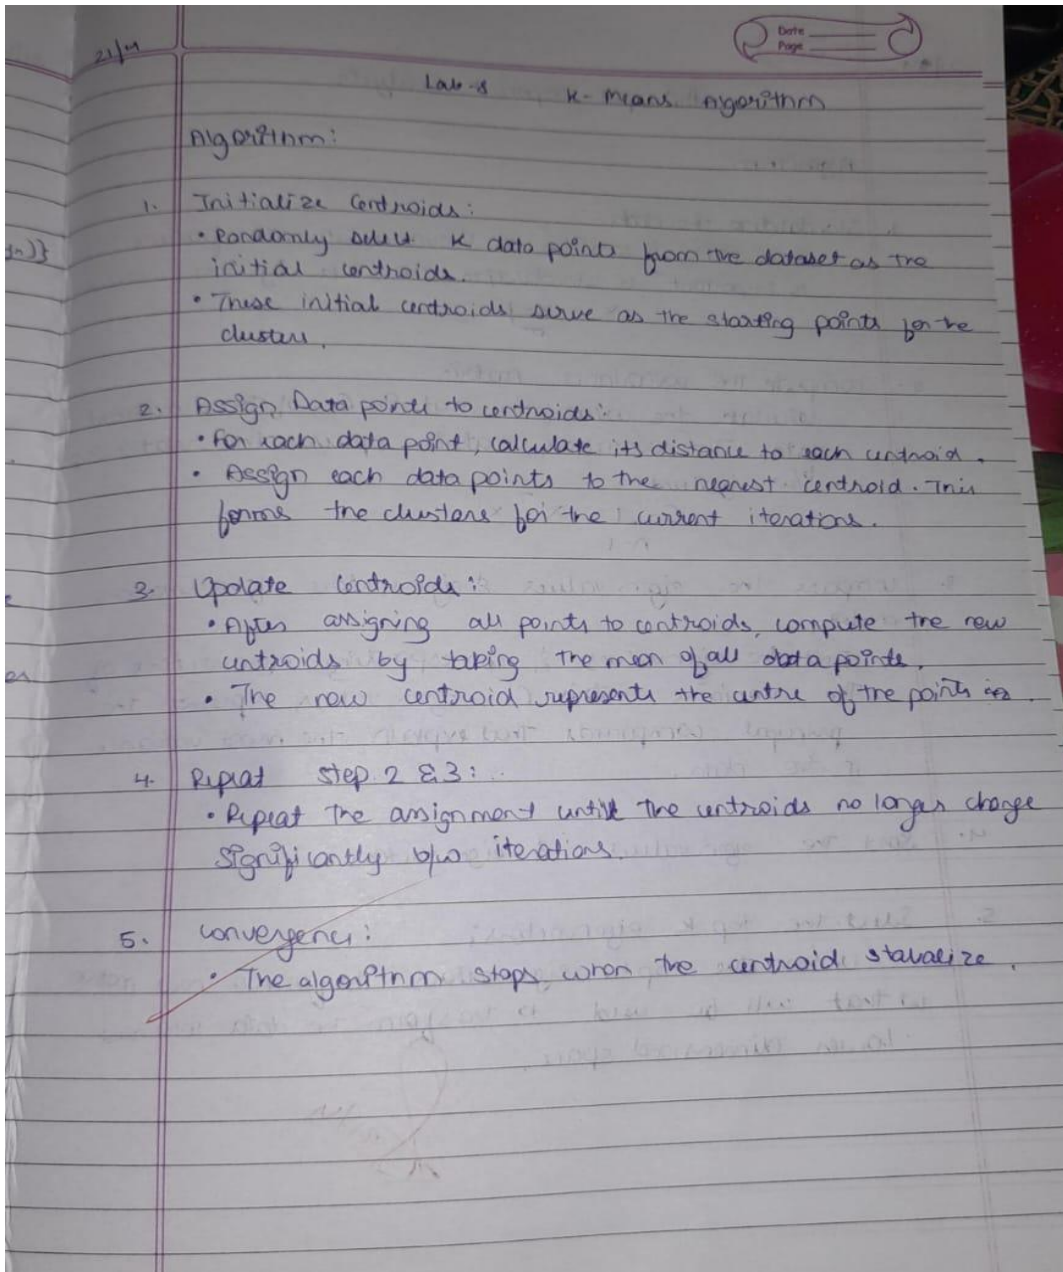 Date
Page
21/4
Lab-8 K-Means Algorithm
Algorithm:
1. Initialize Centroids:
• Randomly select K data points from the dataset as the
initial centroids.
• These initial centroids serve as the starting points for the
clusters.
2. Assign Data points to centroids:
• For each data point, calculate its distance to each centroid.
• Assign each data points to the nearest centroid. This
forms the clusters for the current iterations.
3. Update Centroids:
• After assigning all points to centroids, compute the new
centroids by taking the mean of all data points.
• The new centroid represents the centre of the points in.
4. Repeat step 2 & 3:
• Repeat the assignment until the centroids no longer change
significantly b/w iterations.
5. Convergence:
• The algorithm stops when the centroid stabalize.